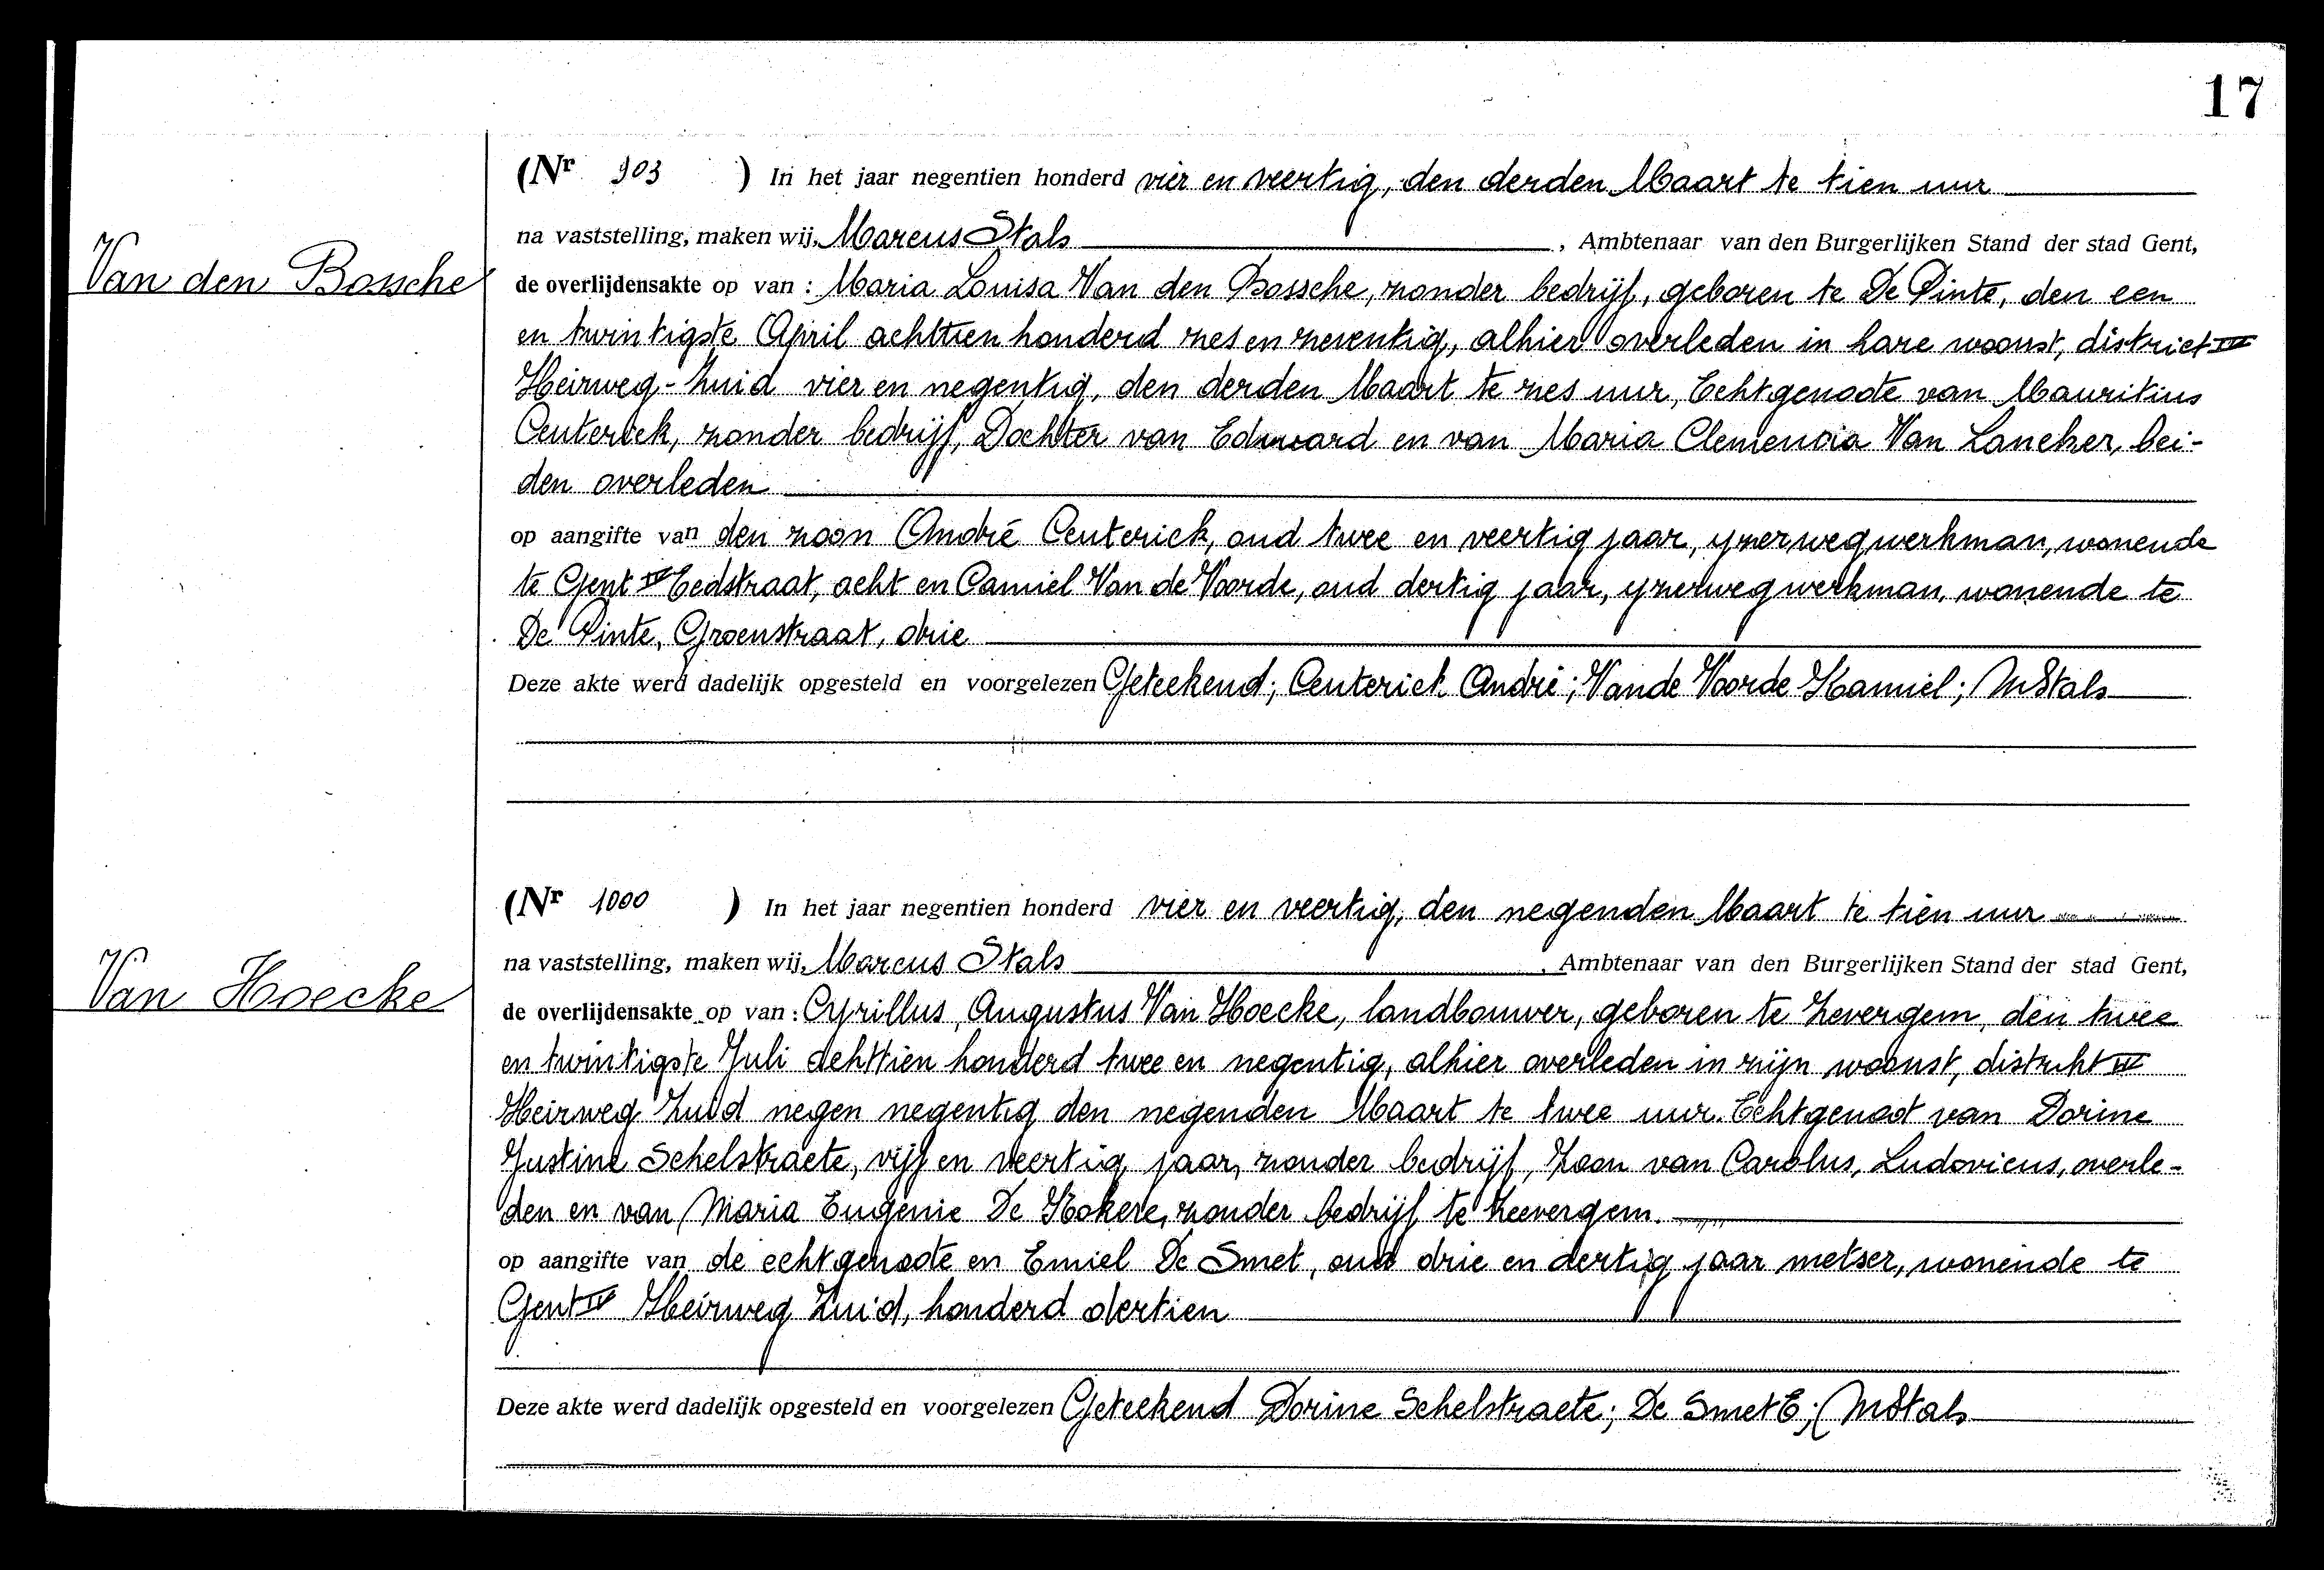 17
(Nr 903 ) In het jaar negentien honderd vier en veertig, den derden Maart te tien uur
na vaststelling, maken wij, Marcus Stals, Ambtenaar van den Burgerlijken Stand der stad Gent,
Van den Bossche
de overlijdensakte op van : Maria Louisa Van den Bossche, zonder bedrijf, geboren te De Pinte, den een
en twintigste April achttien honderd zes en zeventig, alhier overleden in hare woonst, district IV
Heirweg-Zuid vier en negentig, den derden Maart te zes uur, Echtgenoote van Mauritius
Ceuterick, zonder bedrijf, Dochter van Edward en van Maria Clemencia Van Lancker, bei-
den overleden
op aangifte van den zoon André Ceuterick, oud twee en veertig jaar, yzerwegwerkman, wonende
te Gent IV Eedstraat, acht en Camiel Van de Voorde, oud dertig jaar, yzerwegwerkman, wonende te
De Pinte, Groenstraat, drie
Deze akte werd dadelijk opgesteld en voorgelezen Geteekend; Ceuterick André; Vande Voorde Kamiel; MStals
(Nr 1000 ) In het jaar negentien honderd vier en veertig, den negenden Maart te tien uur
na vaststelling, maken wij, Marcus Stals, Ambtenaar van den Burgerlijken Stand der stad Gent,
Van Hoecke
de overlijdensakte op van : Cyrillus, Augustus Van Hoecke, landbouwer, geboren te Zevergem, den twee
en twintigste Juli achttien honderd twee en negentig, alhier overleden in zijn woonst, distrikt IV
Heirweg Zuid negen negentig den negenden Maart te twee uur. Echtgenoot van Dorine
Justine Schelstraete, vijf en veertig jaar, zonder bedrijf, Zoon van Carolus, Ludovicus, overle-
den en van Maria Eugenie De Kokere, zonder bedrijf te Zeevergem.
op aangifte van de echtgenoote en Emiel De Smet, oud drie en dertig jaar metser, wonende te
Gent IV Heirweg Zuid, honderd dertien
Deze akte werd dadelijk opgesteld en voorgelezen Geteekend Dorine Schelstraete; De Smet E; MStals